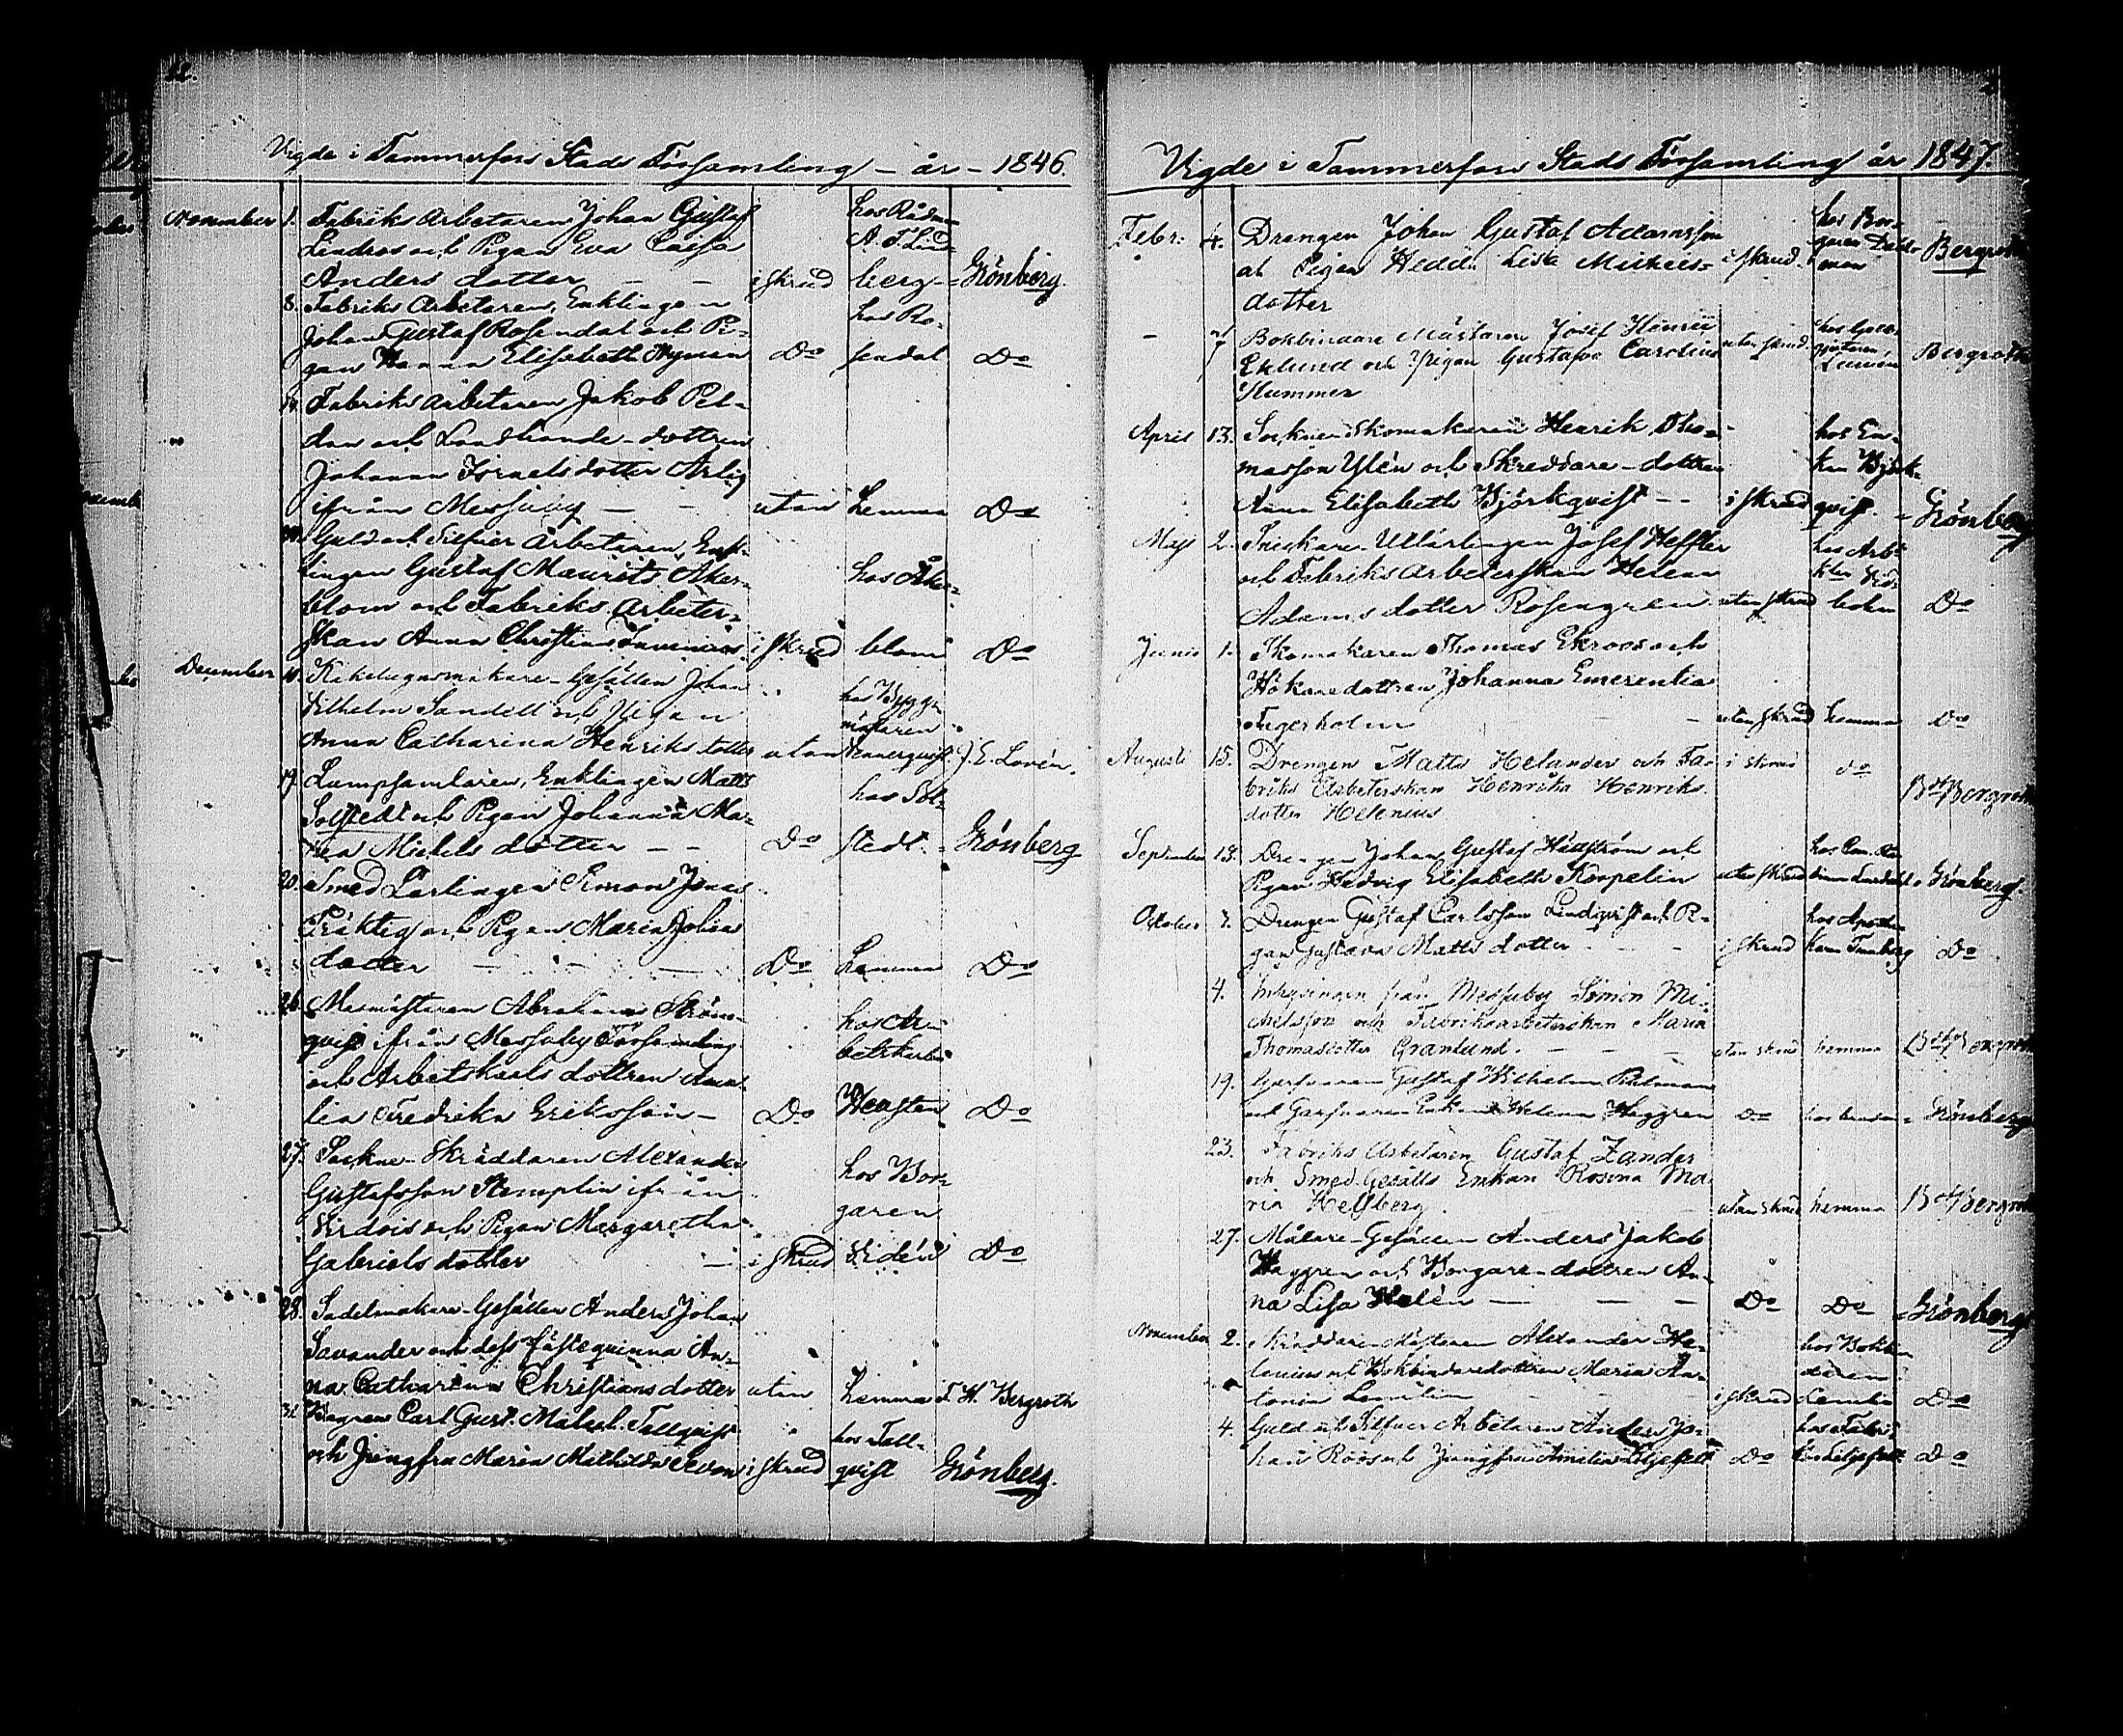 Vigde i Tammerfors Stads Församling – år – 1846.
November 1. Fabriks arbetaren Johan Gustaf hos Rådm
Lindros och Pigan Eva Caisa A. F. Lind
Anders dotter – – i skrud berg – Grönberg.
8. Fabriks Arbetaren, Enklingen hos Ro-
Johan Gustaf Rosendal och Pi-
gan Hanna Elisabeth Nyman Do sendal Do
Fabriks arbetaren Jakob Pel-
dan och Landbonde-dottren
Johanna Israelsdotter Arlig
ifrån Messuby – – utan hemma Do
Guld och Silfver Arbetaren, Enk-
lingen Gustaf Maurits Åker- hos Åker-
blom och Fabriks Arbeter-
skan Anna Christina i skrud blom Do
December Kakelugnmakare-Gesällen Johan hos Bygg-
Vilhelm Sandell och Pigan mästaren
Anna Catharina Henriks dotter utan Vennerqvist J. E. Lovén.
19. Lumpsamlaren, Enklingen Matts hos Sol-
Solstedt och Pigan Johanna Ma-
ria Michels dotter – – Do stedt. – Grönberg
20. Smed Lärlingen Simon Jonas
Präktig och Pigan Maria Johans
dotter – – – Do hemma Do
26. Masmästaren Abraham Ström- hos Ar-
qvist ifrån Messuby Församling betskarlen
och Arbetskarls dottren Ama-
lia Fredrika Eriksson – Do Do
27. Sockne-Skräddaren Alexander hos Bor-
Gustafsson Stemplin ifrån garen
Virdois och Pigan Margaretha
Gabriels dotter – i skrud Lidén Do
28. Sadelmakare-Gesällen Anders Johan
Savander och dess fästeqvinna An-
na Catharina Christians dotter utan hemma F. H. Bergroth
31. Carl Gust. Tallqvist hos Tall-
och Jungfru Maria Mathilda i skrud qvist Grönberg.
Vigde i Tammerfors Stads Församling år 1847.
Febr: 4. Drengen Johan Gustaf Adamsson hos Bor-
och Pigan Hedda Lisa Michels- i skrud. garen man Bergroth
dotter
– 7 Bokbindare Mästaren Josef Henric
Eklund och Pigan Gustafva Carolina utan skrud Bergroth
Hummer
April 13. Sockne-Skomakaren Henrik Tho- hos En-
masson Ylén och Skreddare-dottren kan Björk-
Anna Elisabeth Björkqvist – – i skrud qvist. – Grönberg
Maji 2. Snickare-Utlärlingen Josef Heffler hos Arb:
och Fabriks Arbeterskan Helena
Adams dotter Rosengren utan skrud Do
Junii 1. Skomakaren Thomas Ekroos och
Hökaredottren Johanna Emerentia
Ingerholm – utan skrud hemma Do
Augusti 15. Drengen Matts Helander och Fa- i skrud do
briks Arbeterskan Henrika Henriks
dotter Helenius Bergroth
September 13. Drengen Johan Gustaf Häggström och
Pigan Hedvig Elisabeth Korpelin utan skrud Grönberg.
October 3. Drengen Gustaf Carlsson Lindqvist och Pi- hos Apothe-
gan Gustava Matts dotter – – i skrud karen Tennberg Do
4. Inhysingen från Messuby Simon Mi-
chelsson och Fabriksarbeterskan Maria
Thomasdotter Granlund. – – – utan skrud hemma Bergroth
19. Garfvaren Gustaf Wilhelm Palmen
och Garfvaren Enkan Helena Haggren Do Grönberg
23. Fabriks Arbetaren Gustaf Zander
och Smed Gesälls Enkan Rosina Ma-
ria Hellberg. – utan skrud hemma Bergroth
27. Målare-Gesällen Anders Jakob
Haggren och Borgare-dottren An-
na Lisa Helén – – – Do Do – Grönberg
November 2. Skräddare-Mästaren Alexander He- hos Bokbin-
lenius och Bokbindaredottren Maria An- daren
tonia – – i skrud Do
4. Guld och Silfver Arbetaren Anders Jo- hos Fabri-
han Roos och Jungfru Amalia Liljefelt Do kör Liljefelt Do